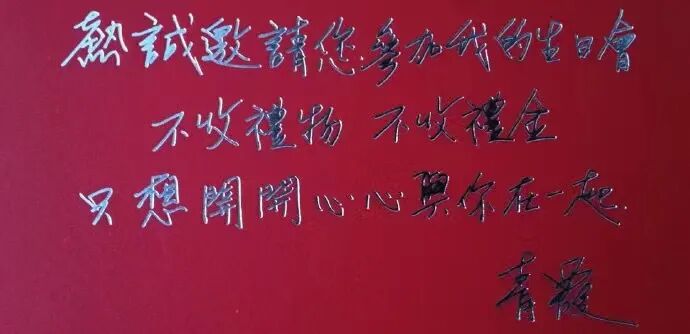 熱誠邀請您參加我的生日會
不收禮物 不收禮金
只想開開心心與你在一起
青霞